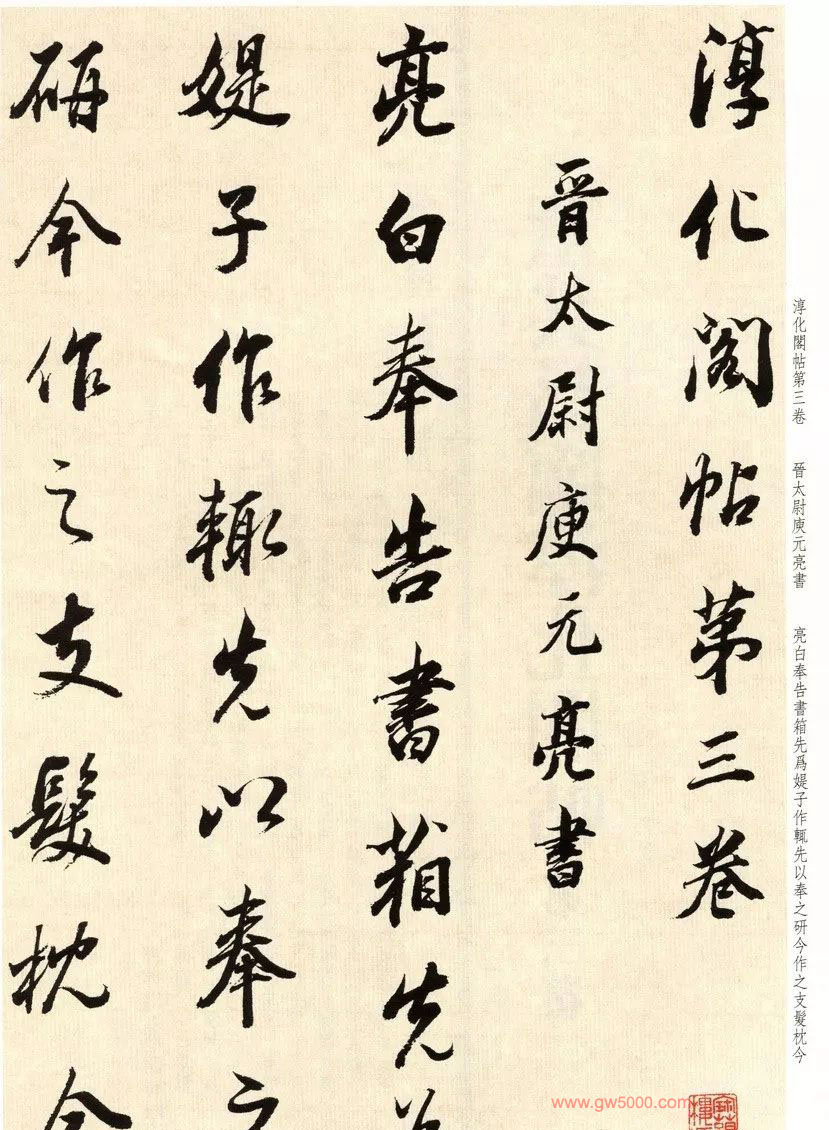 淳化阁帖第三卷
晋太尉庾元亮書
亮白奉告書箱先為
媞子作輙先以奉之
研今作之支髮枕今
淳化閣帖第三卷　晉太尉庾元亮書　亮白奉告書箱先爲媞子作輒先以奉之研今作之支髮枕今
www.gw5000.com